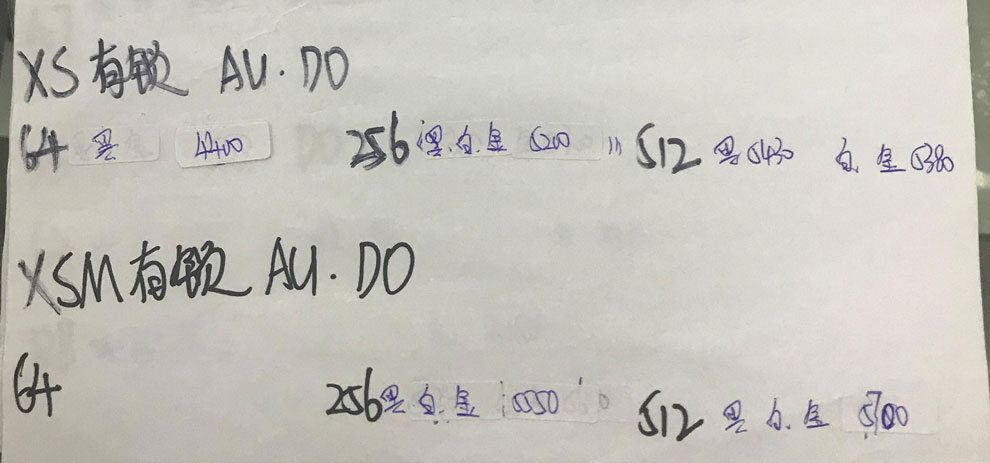 XS有锁 AU.DO
64 黑 4400 256 黑.白.金 5200 " 512 黑5430 白.金5380
XSM有锁 AU.DO
64 256黑白.金 5550 512 黑白.金 5700